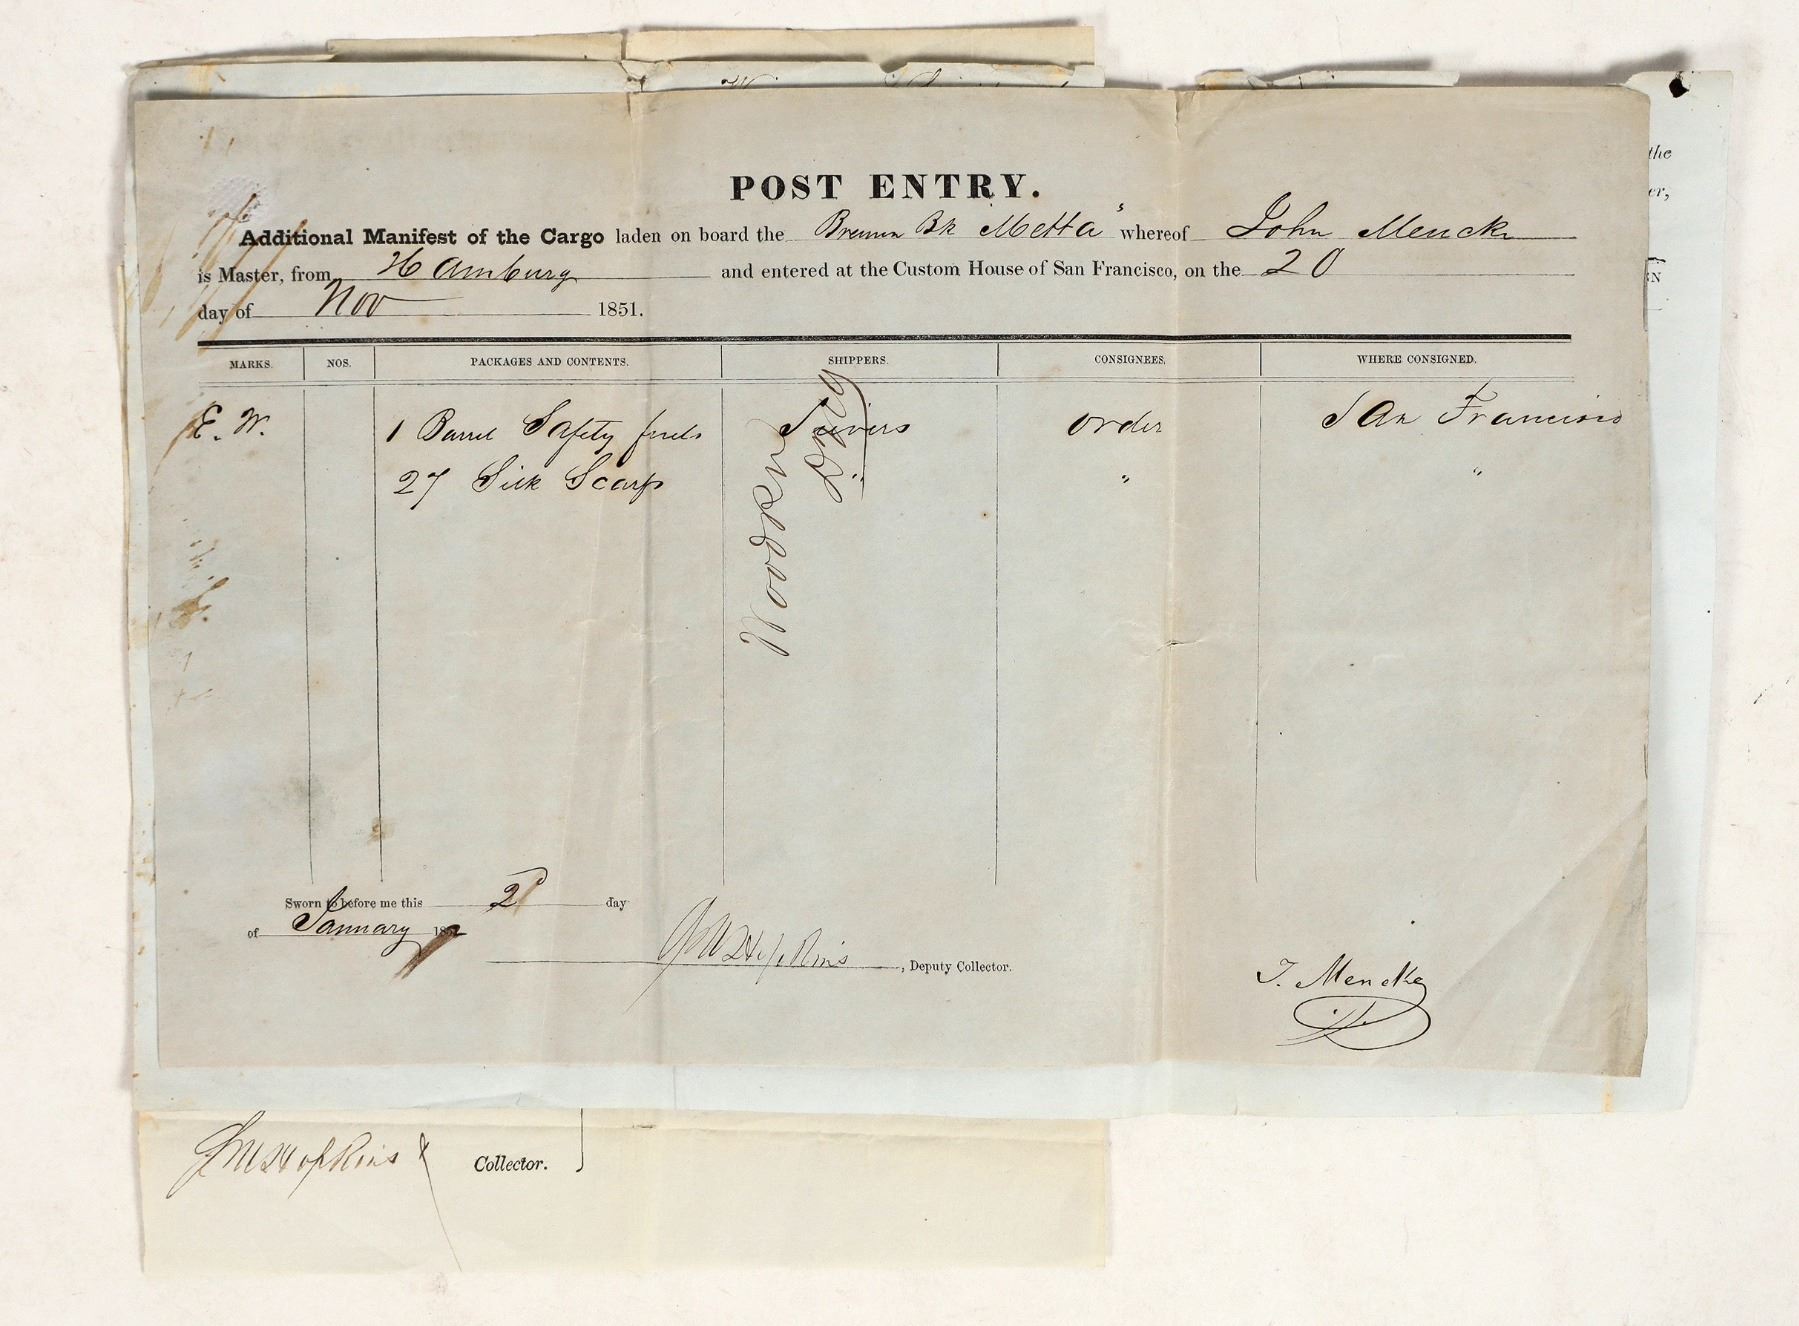 POST ENTRY.
Additional Manifest of the Cargo laden on board the Bremen Bk Metta" whereof John Mencke
is Master, from Hamburg and entered at the Custom House of San Francisco, on the 20
day of Nov 1851.
MARKS. NOS. PACKAGES AND CONTENTS. SHIPPERS. CONSIGNEES. WHERE CONSIGNED.
E. W. 1 Barrel Safety order San Francisco
27 Silk Scarfs " "
Sworn to before me this 2d day
of January 1852
, Deputy Collector.
J. Mencke
Collector.
the
er,